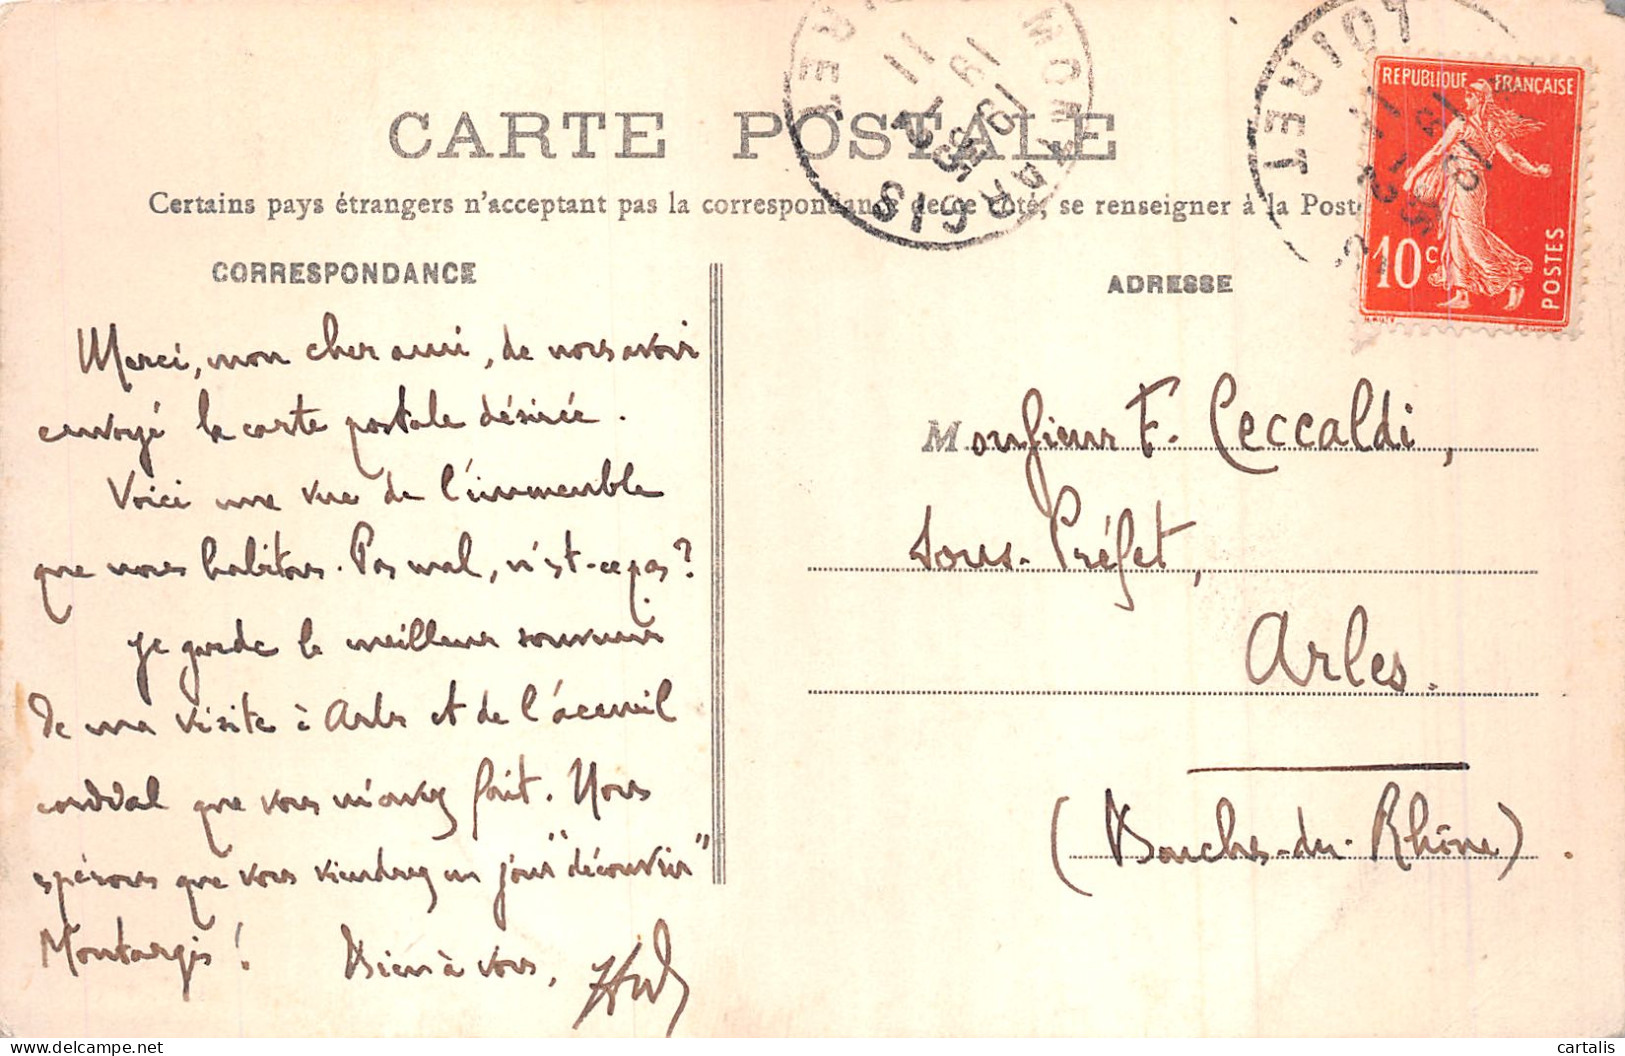 CARTE POSTALE
Certains pays étrangers n'acceptent pas la correspondance de ce côté, se renseigner à la Poste
CORRESPONDANCE
ADRESSE
REPUBLIQUE FRANÇAISE
10c
POSTES
MONTARGIS
LOIRET
Merci, mon cher ami, de nous avoir
envoyé la carte postale désirée.
Voici une vue de l'immeuble
que nous habitons. Pas mal, n'est-ce pas?
Je garde le meilleur souvenir
de ma visite à Arles et de l'accueil
cordial que vous m'avez fait. Nous
espérons que vous viendrez un jour "découvrir"
Montargis!
Bien à vous,
Monsieur F. Ceccaldi,
Sous-Préfet,
Arles.
(Bouches-du-Rhône).
cartalis